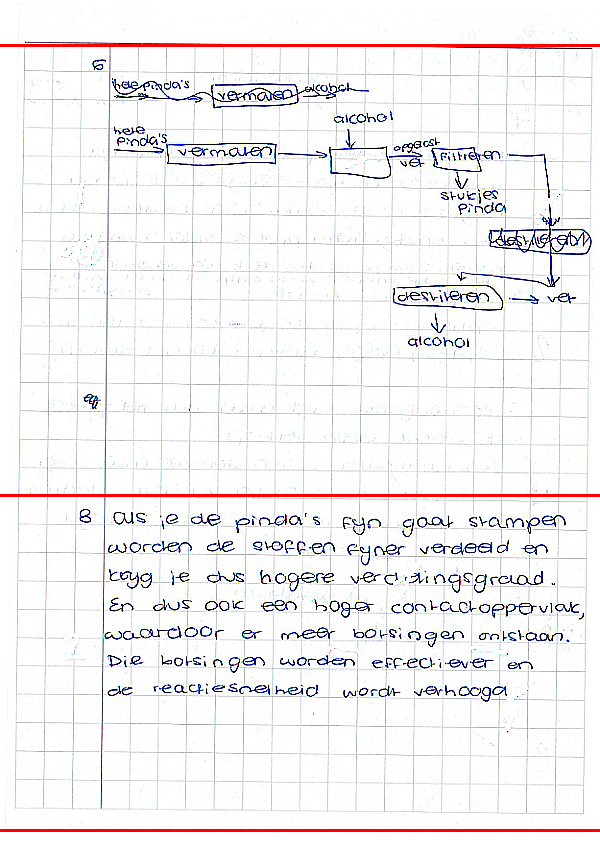 5
hele pinda's vermalen alcohol
alcohol
hele
pinda's vermalen
opgelost
vet
filtreren
stukjes
pinda
destilleren vet
alcohol
8 als je de pinda's fyn gaat stampen
worden de stoffen fyner verdeeld en
kryg je dus hogere verdelingsgraad.
En dus ook een hoger contactoppervlak,
waardoor er meer botsingen ontstaan.
Die botsingen worden effectiever en
de reactiesnelheid wordt verhoogd.